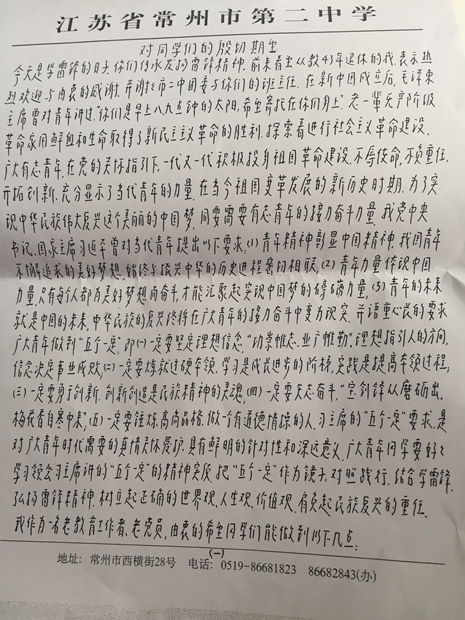 江苏省常州市第二中学
对同学们的殷切期望
今天是学雷锋的日子,你们传承发扬雷锋精神,前来看望从教43年退休的我,表示热
热欢迎与由衷的感谢,并谢谢市二中团委与你们的班主任。在新中国成立后,毛泽东
主席曾对青年讲过"你们是早上八九点钟的太阳,希望寄托在你们身上"老一辈无产阶级
革命家用鲜血和生命取得了新民主义革命的胜利,探索着进行社会主义革命建设。
广大有志青年,在党的关怀指引下,一代又一代积极投身祖国革命建设,不辱使命,不负重任,
开拓创新,充分显示了当代青年的力量,在当今祖国变革发展的新历史时期,为了实
现中华民族伟大复兴这个美丽的中国梦,同要需要有志青年的接力奋斗力量,我党中央
书记、国家主席习近平曾对当代青年提出以下要求,(1)青年精神彰显中国精神,我国青年
不懈追求的美好梦想,始终与振兴中华的历史进程紧切相联;(2)青年力量传现中国
力量,只有每个人都为美好梦想而奋斗,才能汇聚起实现中国梦的磅礴力量;(3)青年的未来
就是中国的未来,中华民族的复兴终将在广大青年的接力奋斗中变为现实,并语重心长的要求
广大青年做到"五个一定",即(一)一定要坚定理想信念,"功崇惟志,业广惟勤",理想指引人的方向,
信念决定事业成败;(二)一定要练就过硬本领,学习是成长进步的阶梯,实践是提高本领过程;
(三)一定要勇于创新,创新创造是民族精神的灵魂;(四)一定要矢志奋斗,"宝剑锋从磨砺出,
梅花香自寒中来";(五)一定要锤炼高尚品格,做一个有道德情操的人,习主席的"五个一定"要求,是
对广大青年时代需要的真情关怀爱护,具有鲜明的针对性和深远意义,广大青年同学要好之
学习领会习主席讲的"五个一定"的精神实质,把"五个一定"作为镜子,对照践行,结合学雷锋,
弘扬雷锋精神,树立起正确的世界观,人生观,价值观,肩负起民族复兴的重任。
我作为一名老教育工作者、老党员,由衷的希望同学们能做到以下几点:
(一)
地址:常州市西横街28号 电话:0519-86681823 86682843(办)